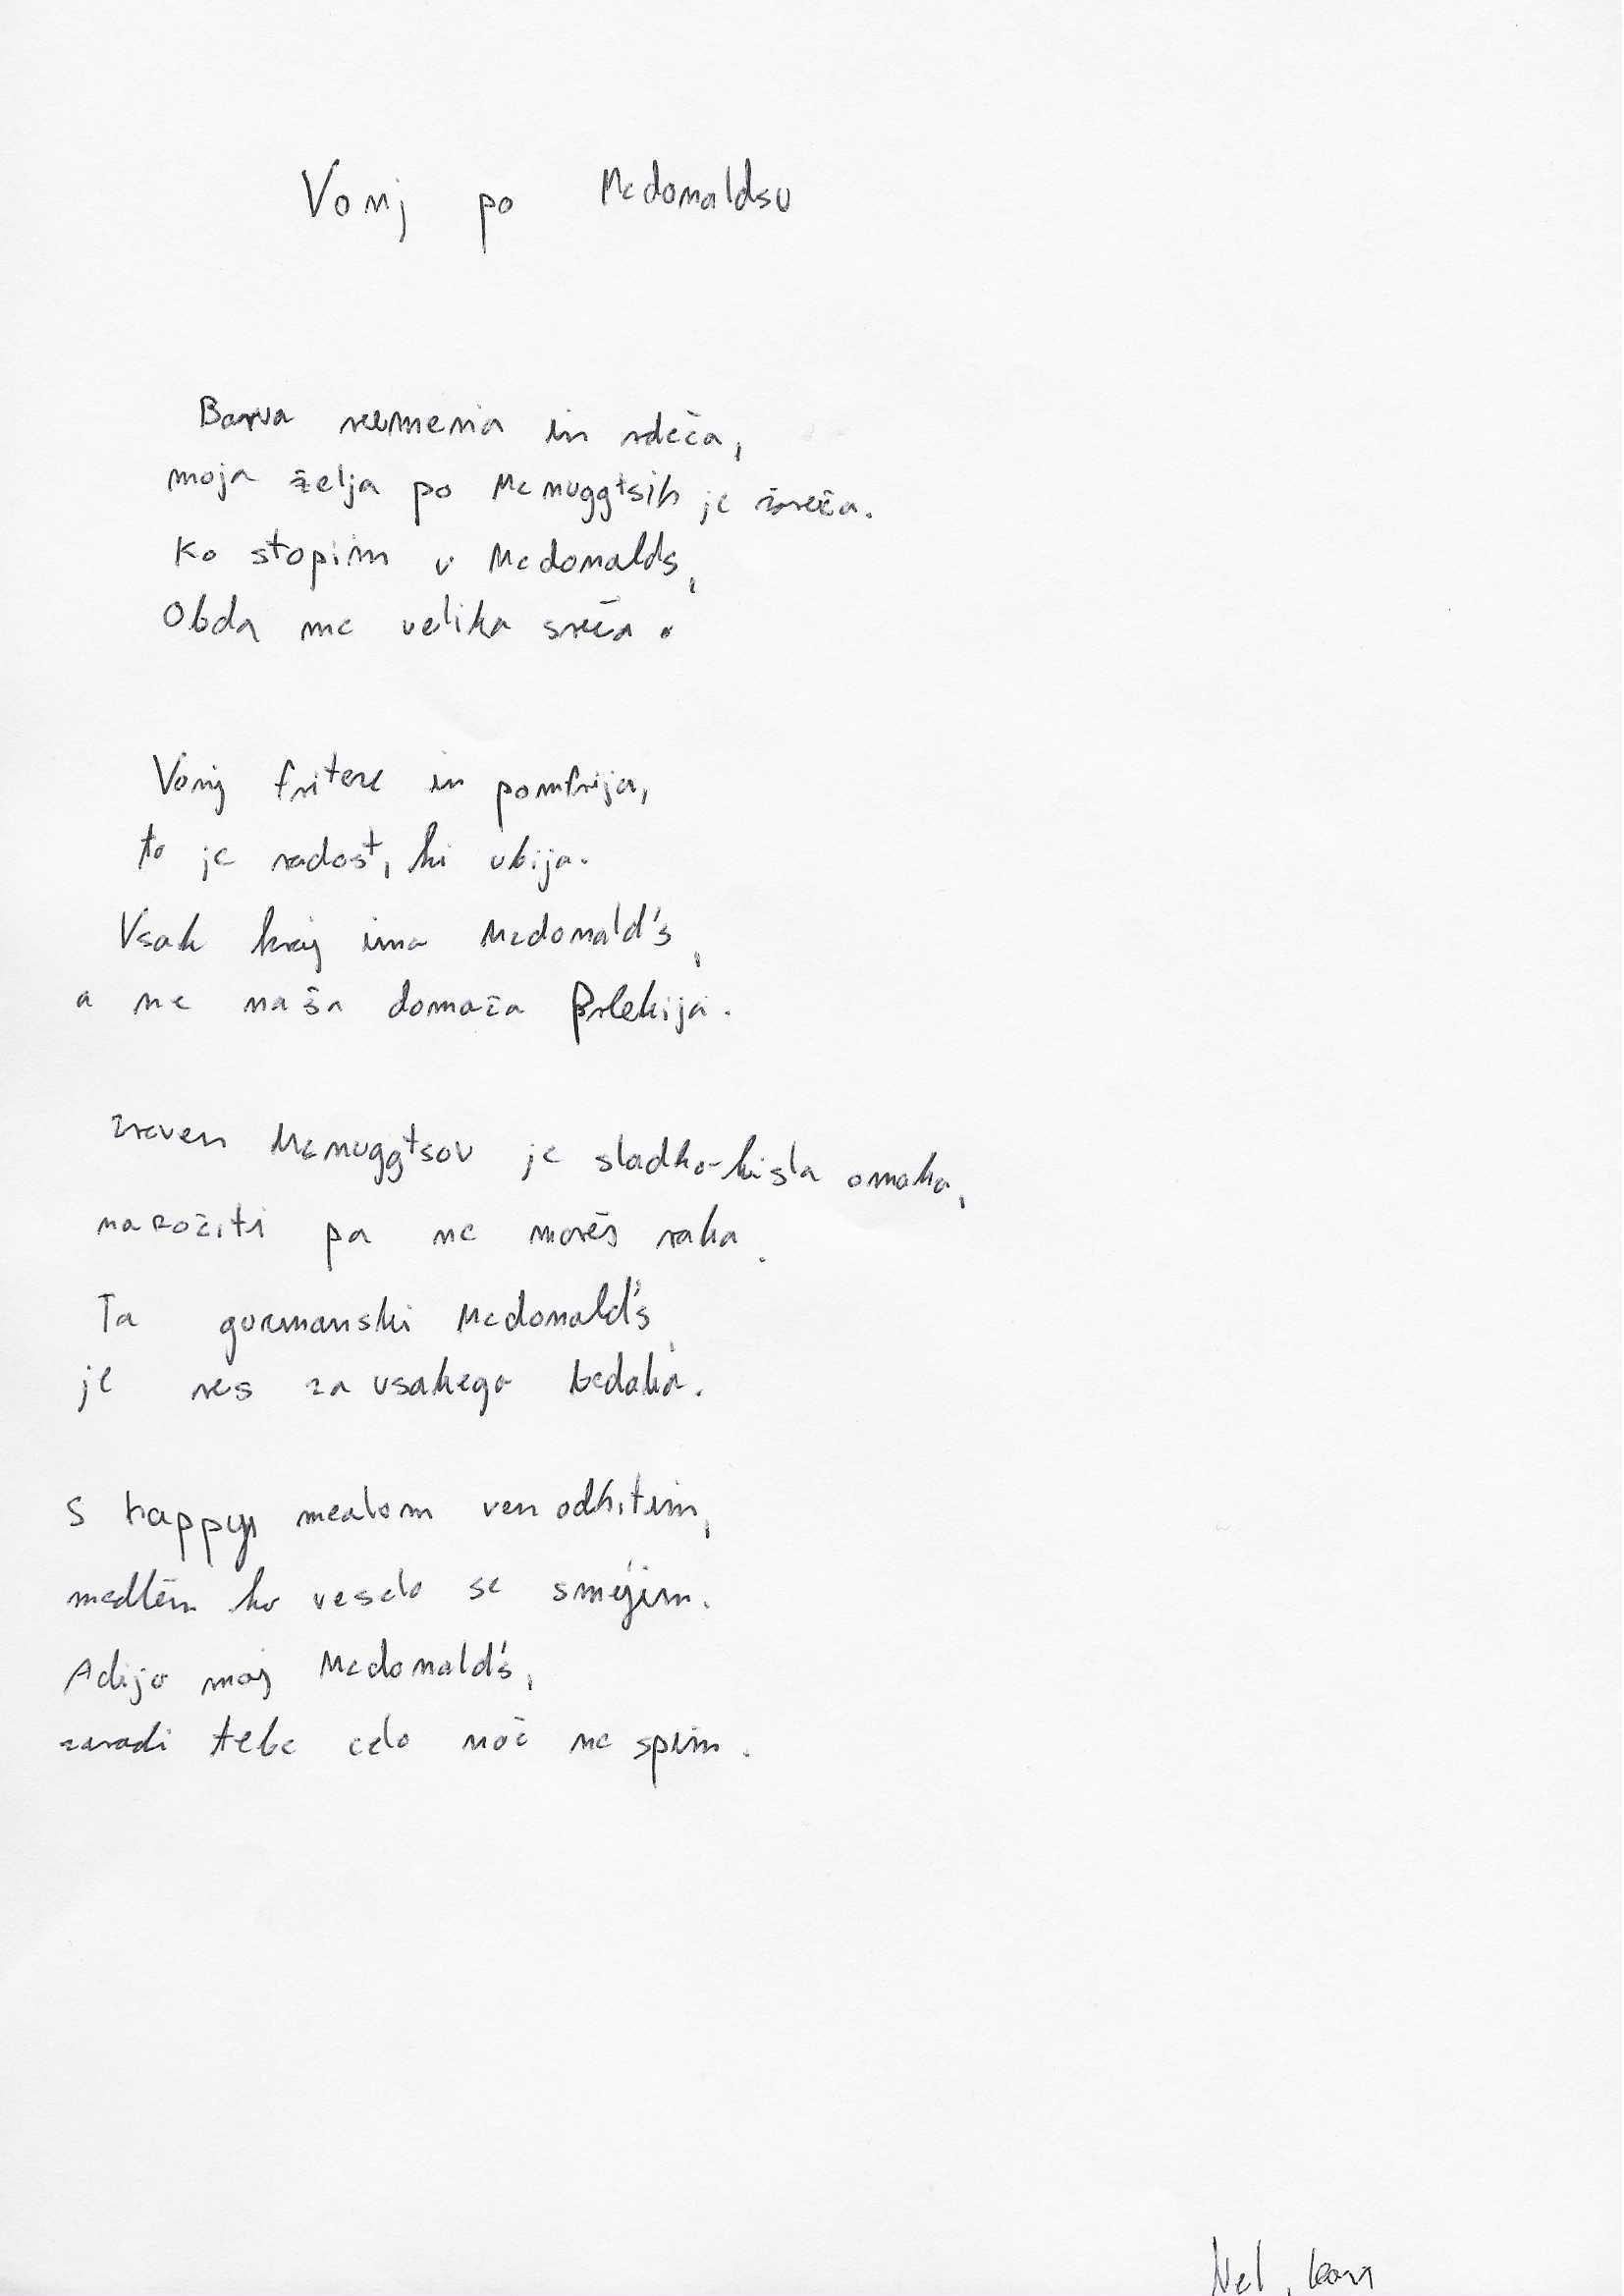 Vonj po Mcdonaldsu
Barva rumena in rdeča,
moja želja po Mcnuggtsih je žareča.
Ko stopim v Mcdonalds,
Obda me velika sreča.
Vonj friteze in pomfrija,
to je radost, ki ubija.
Vsak kraj ima Mcdonald's,
a ne naša domača Prlekija.
zraven Mcnuggtsov je sladko-kisla omaka,
naročiti pa ne moreš raka.
Ta gurmanski Mcdonald's,
je res za vsakega bedaka.
S happy mealom ven odhitim,
medtem ko veselo se smejim.
Adijo moj Mcdonald's,
zaradi tebe celo noč ne spim.
Nel,